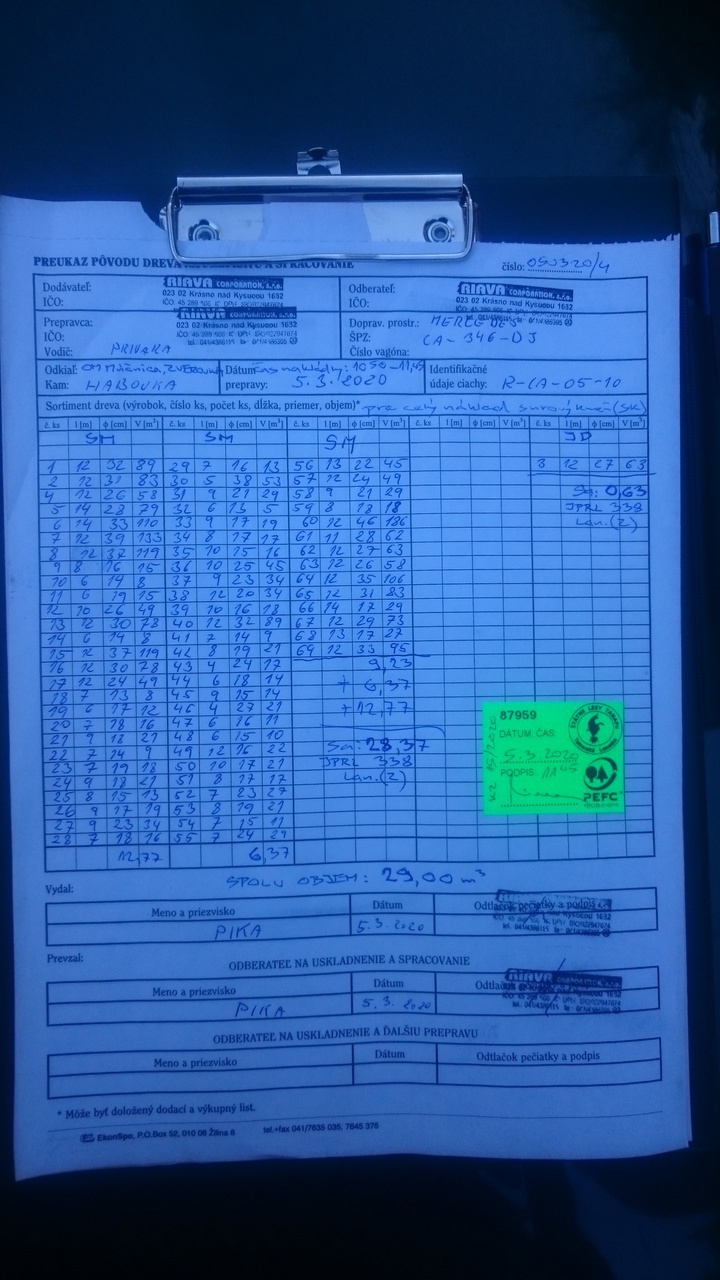 PREUKAZ PÔVODU DREVA SPRACOVANIE
číslo: 050320/4
Dodávateľ: RIAVA CORPORATION, s.r.o.
023 02 Krásno nad Kysucou 1632
IČO:
Odberateľ: RIAVA CORPORATION, s.r.o.
023 02 Krásno nad Kysucou 1632
IČO:
Prepravca: RIAVA CORPORATION, s.r.o.
023 02 Krásno nad Kysucou 1632
IČO:
Vodič: PRIVARA
Doprav. prostr.: MERCEDES
ŠPZ: CA-346-DJ
Číslo vagóna:
Odkiaľ: OM
Kam: HABOVKA
Dátum čas nakládky: 1050-1145
prepravy: 5.3.2020
Identifikačné
údaje ciachy: R-CA-05-10
Sortiment dreva (výrobok, číslo ks, počet ks, dĺžka, priemer, objem)* pre celý náklad surový kmeň (SK)
č. ks l [m] ϕ [cm] V [m³] č. ks l [m] ϕ [cm] V [m³] č. ks l [m] ϕ [cm] V [m³] č. ks l [m] ϕ [cm] V [m³] č. ks l [m] ϕ [cm] V [m³]
SM SM SM JD
1 12 32 89 29 7 16 13 56 13 22 45 3 12 27 63
2 12 31 83 30 5 38 53 57 12 24 49
4 12 26 58 31 9 21 29 58 9 21 29 Sa: 0,63
5 14 28 79 32 6 13 5 59 8 18 18 JPRL 338
6 14 33 110 33 9 17 19 60 12 46 186 Lan.(2)
7 12 39 133 34 8 17 17 61 11 28 62
8 12 37 119 35 10 15 16 62 12 27 63
9 8 16 15 36 10 25 45 63 12 26 58
10 6 14 8 37 9 23 34 64 12 35 106
11 6 19 15 38 12 20 34 65 12 31 83
12 10 26 49 39 10 16 18 66 14 17 29
13 12 30 78 40 12 32 89 67 12 29 73
14 6 14 8 41 7 14 9 68 13 17 27
15 12 37 119 42 8 19 21 69 12 33 95
16 12 30 78 43 4 24 17 9,23
17 12 24 49 44 6 18 14 + 6,37
18 7 13 8 45 9 15 14
19 6 17 12 46 4 27 21 +12,77
20 7 18 16 47 6 16 11
21 9 18 21 48 6 15 10 Sa: 28,37
22 7 14 9 49 12 16 22 JPRL 338
23 7 19 18 50 10 17 21 Lan.(2)
24 9 18 21 51 8 17 17
25 8 15 13 52 7 23 27
26 9 17 19 53 8 19 21
27 9 23 34 54 7 15 11
28 7 18 16 55 7 24 29
12,77 6,37
87959
DÁTUM, ČAS:
5.3.2020
PODPIS 1145
ŠTÁTNE LESY TANAPU
PEFC
SPOLU OBJEM: 29,00 m³
Vydal:
Meno a priezvisko Dátum Odtlačok pečiatky a podpis
PIKA 5.3.2020
Prevzal:
ODBERATEĽ NA USKLADNENIE A SPRACOVANIE
Meno a priezvisko Dátum
PIKA 5.3.2020 RIAVA CORPORATION, s.r.o.
ODBERATEĽ NA USKLADNENIE A ĎALŠIU PREPRAVU
Meno a priezvisko Dátum Odtlačok pečiatky a podpis
* Môže byť doložený dodací a výkupný list.
EkonSpo, P.O.Box 52, 010 08 Žilina 8 tel.+fax 041/7635 035, 7645 376